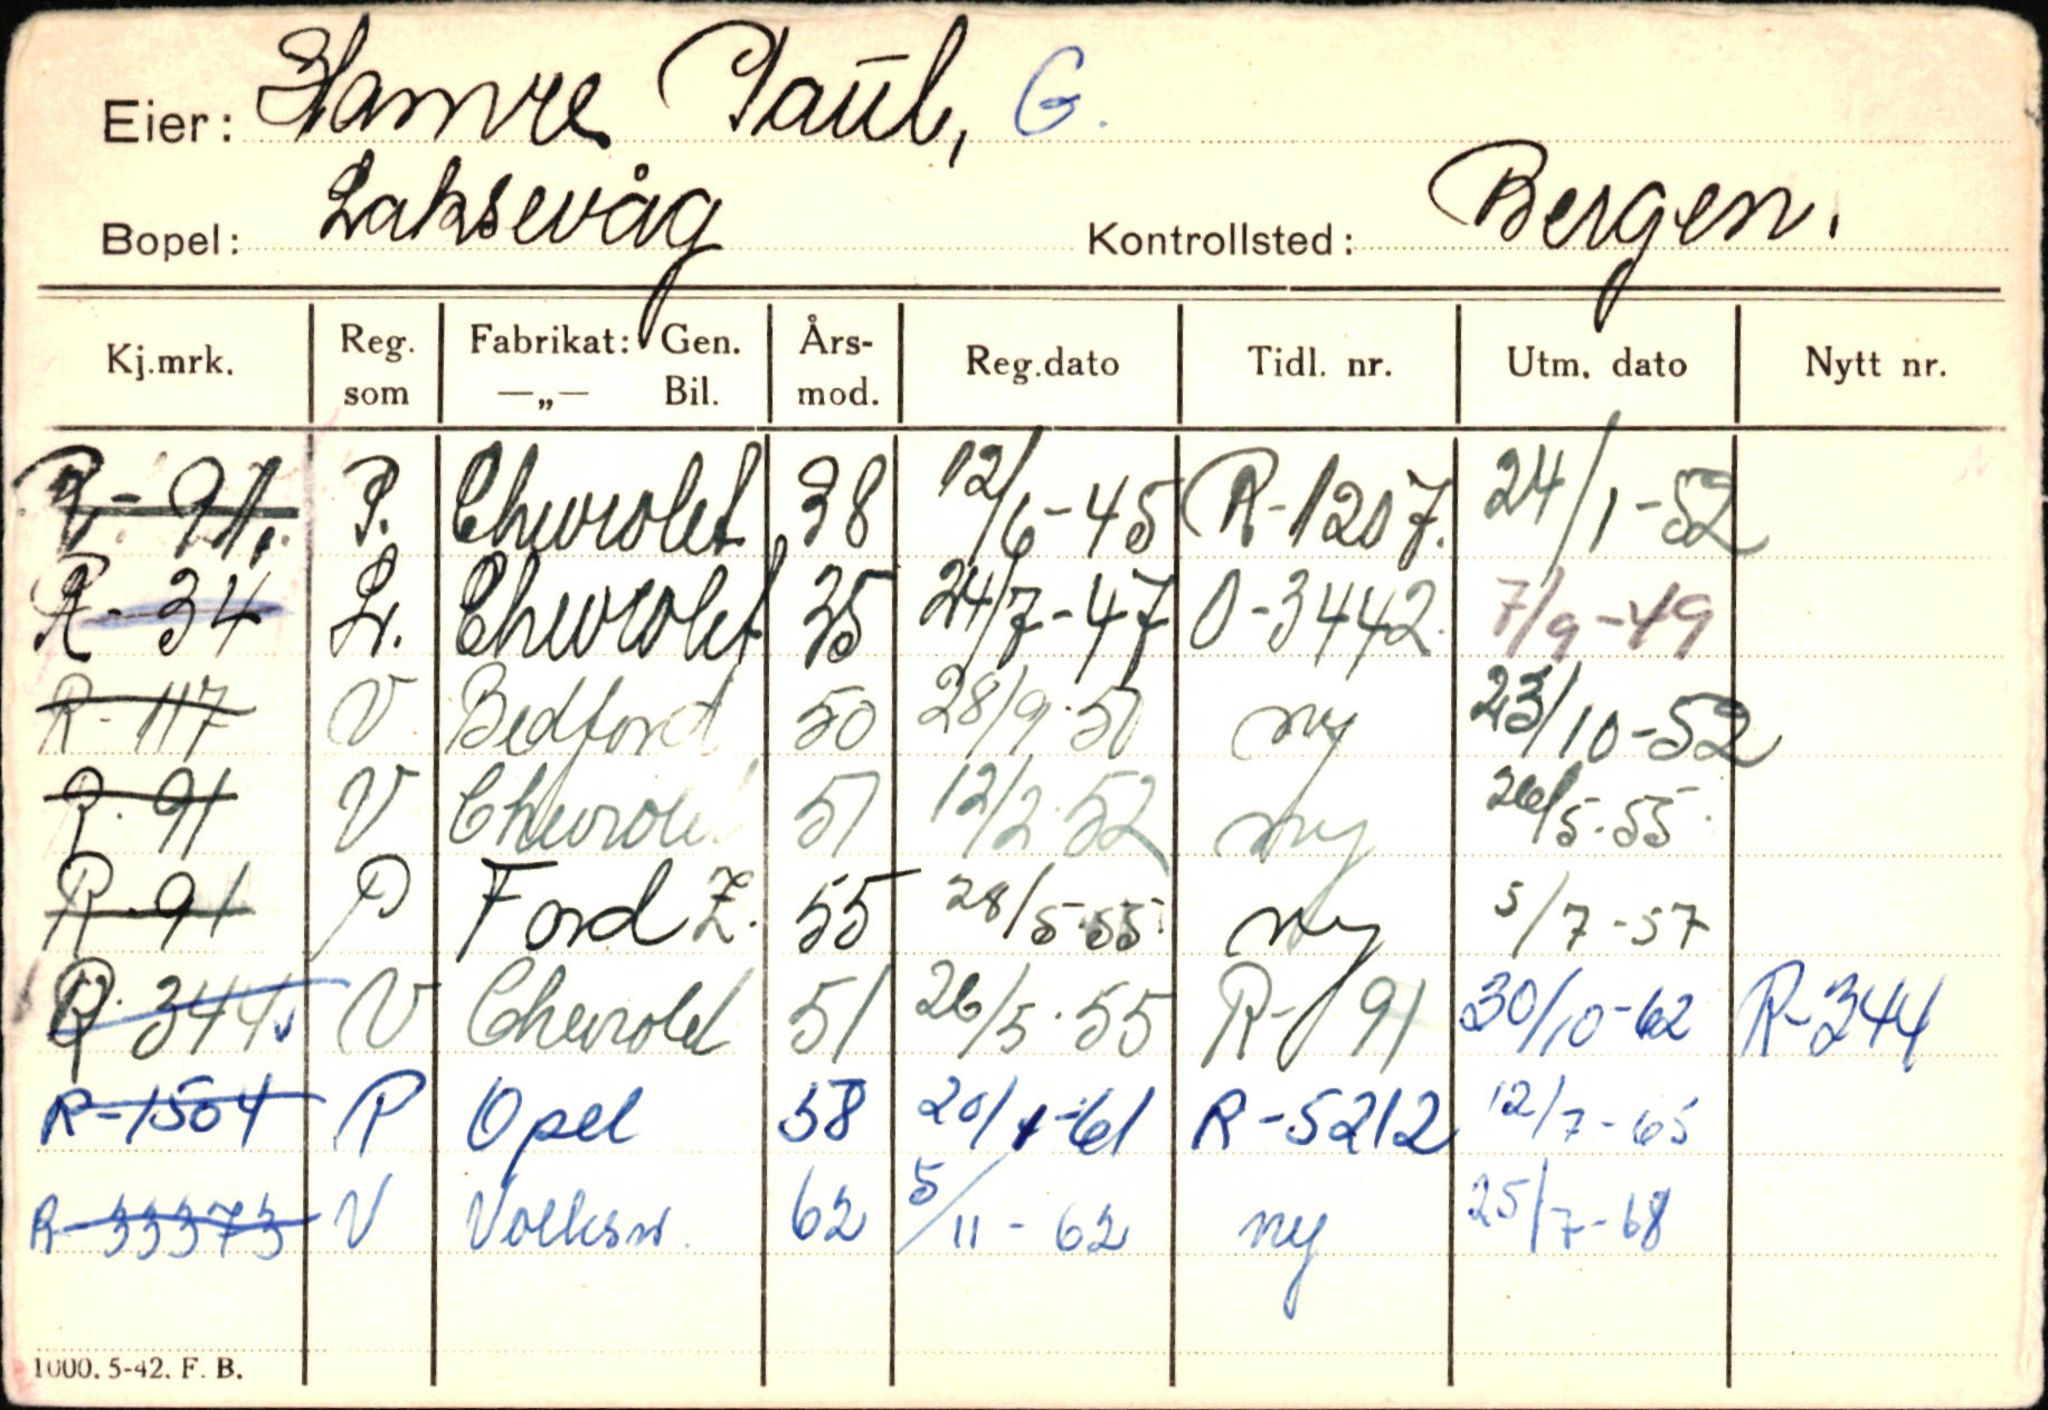 Eier: Hamre Paul, G.
Bopel: Laksevåg Kontrollsted: Bergen.
Kj.mrk. Reg. som Fabrikat: Gen. —„— Bil. Års- mod. Reg.dato Tidl. nr. Utm. dato Nytt nr.
R-91. P. Chevrolet 38 12/6-45 R-1207. 24/1-52
R-34 L. Chevrolet 35 24/7-47 O-3442. 7/9-49
R-117 V Bedford 50 28/9-50 ny 23/10-52
R-91 V Chevrolet 51 12/2-52 ny 26/5-55
R-91 P Ford Z. 55 28/5-55 ny 5/7-57
R-344 V Chevrolet 51 26/5-55 R-91 30/10-62 R-344
R-1504 P Opel 58 20/1-61 R-5212 12/7-65
R-33373 V Volksw. 62 5/11-62 ny 25/7-68
1000. 5-42. F. B.